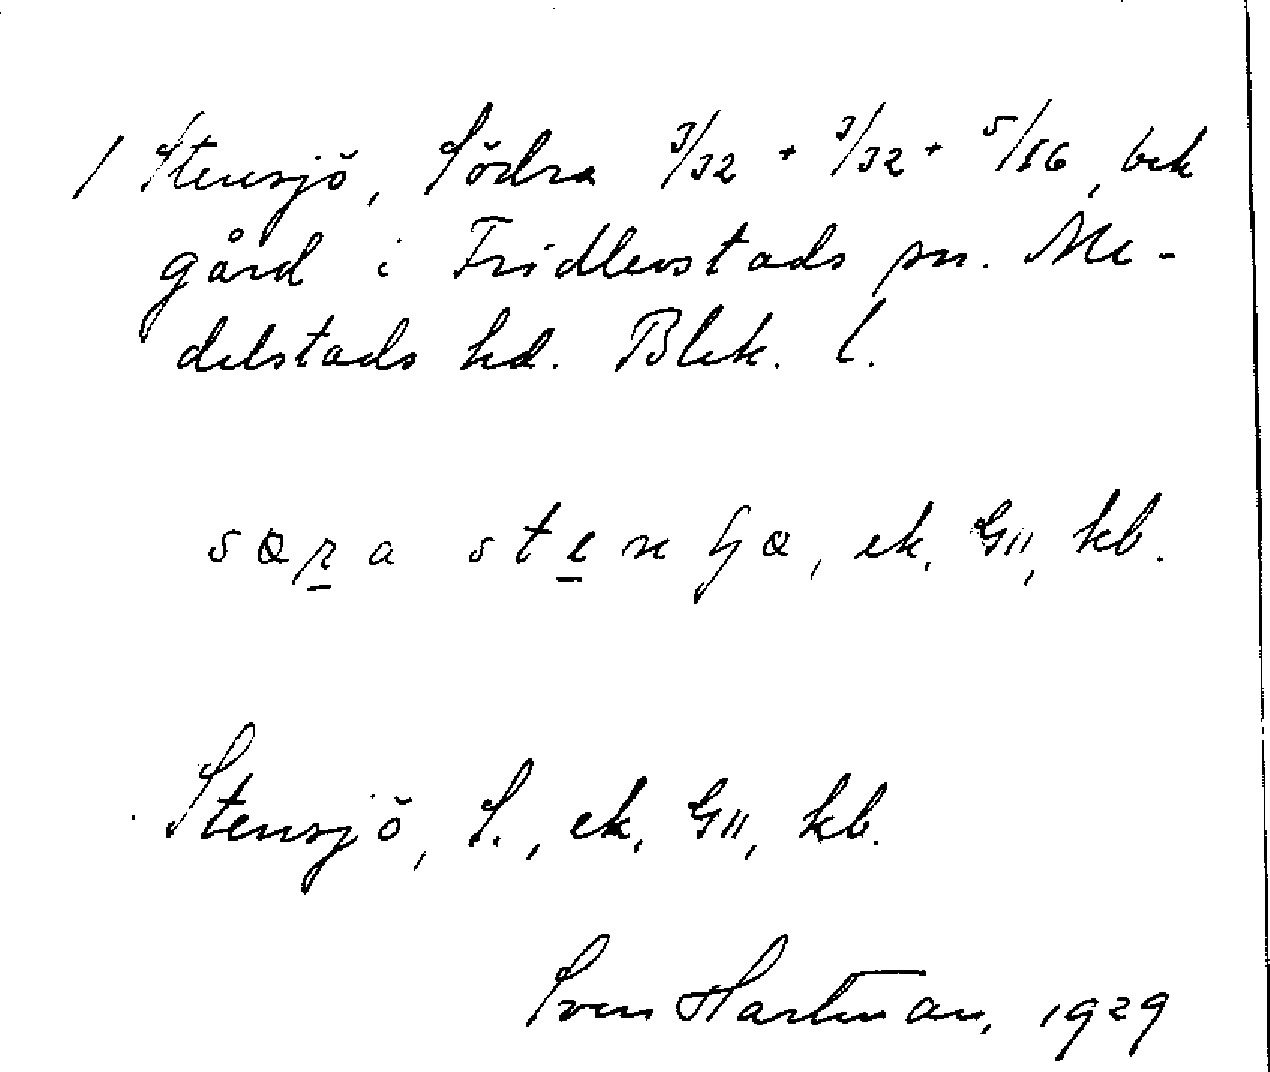 / Stensjö, Södra 3/32 + 3/32 + 5/56, bek
gård i Fridlevstads sn. Me-
delstads hd. Blek. l.
ek. GII, kb.
Stensjö, S., ek. GII, kb.
Sven Hartman, 1929